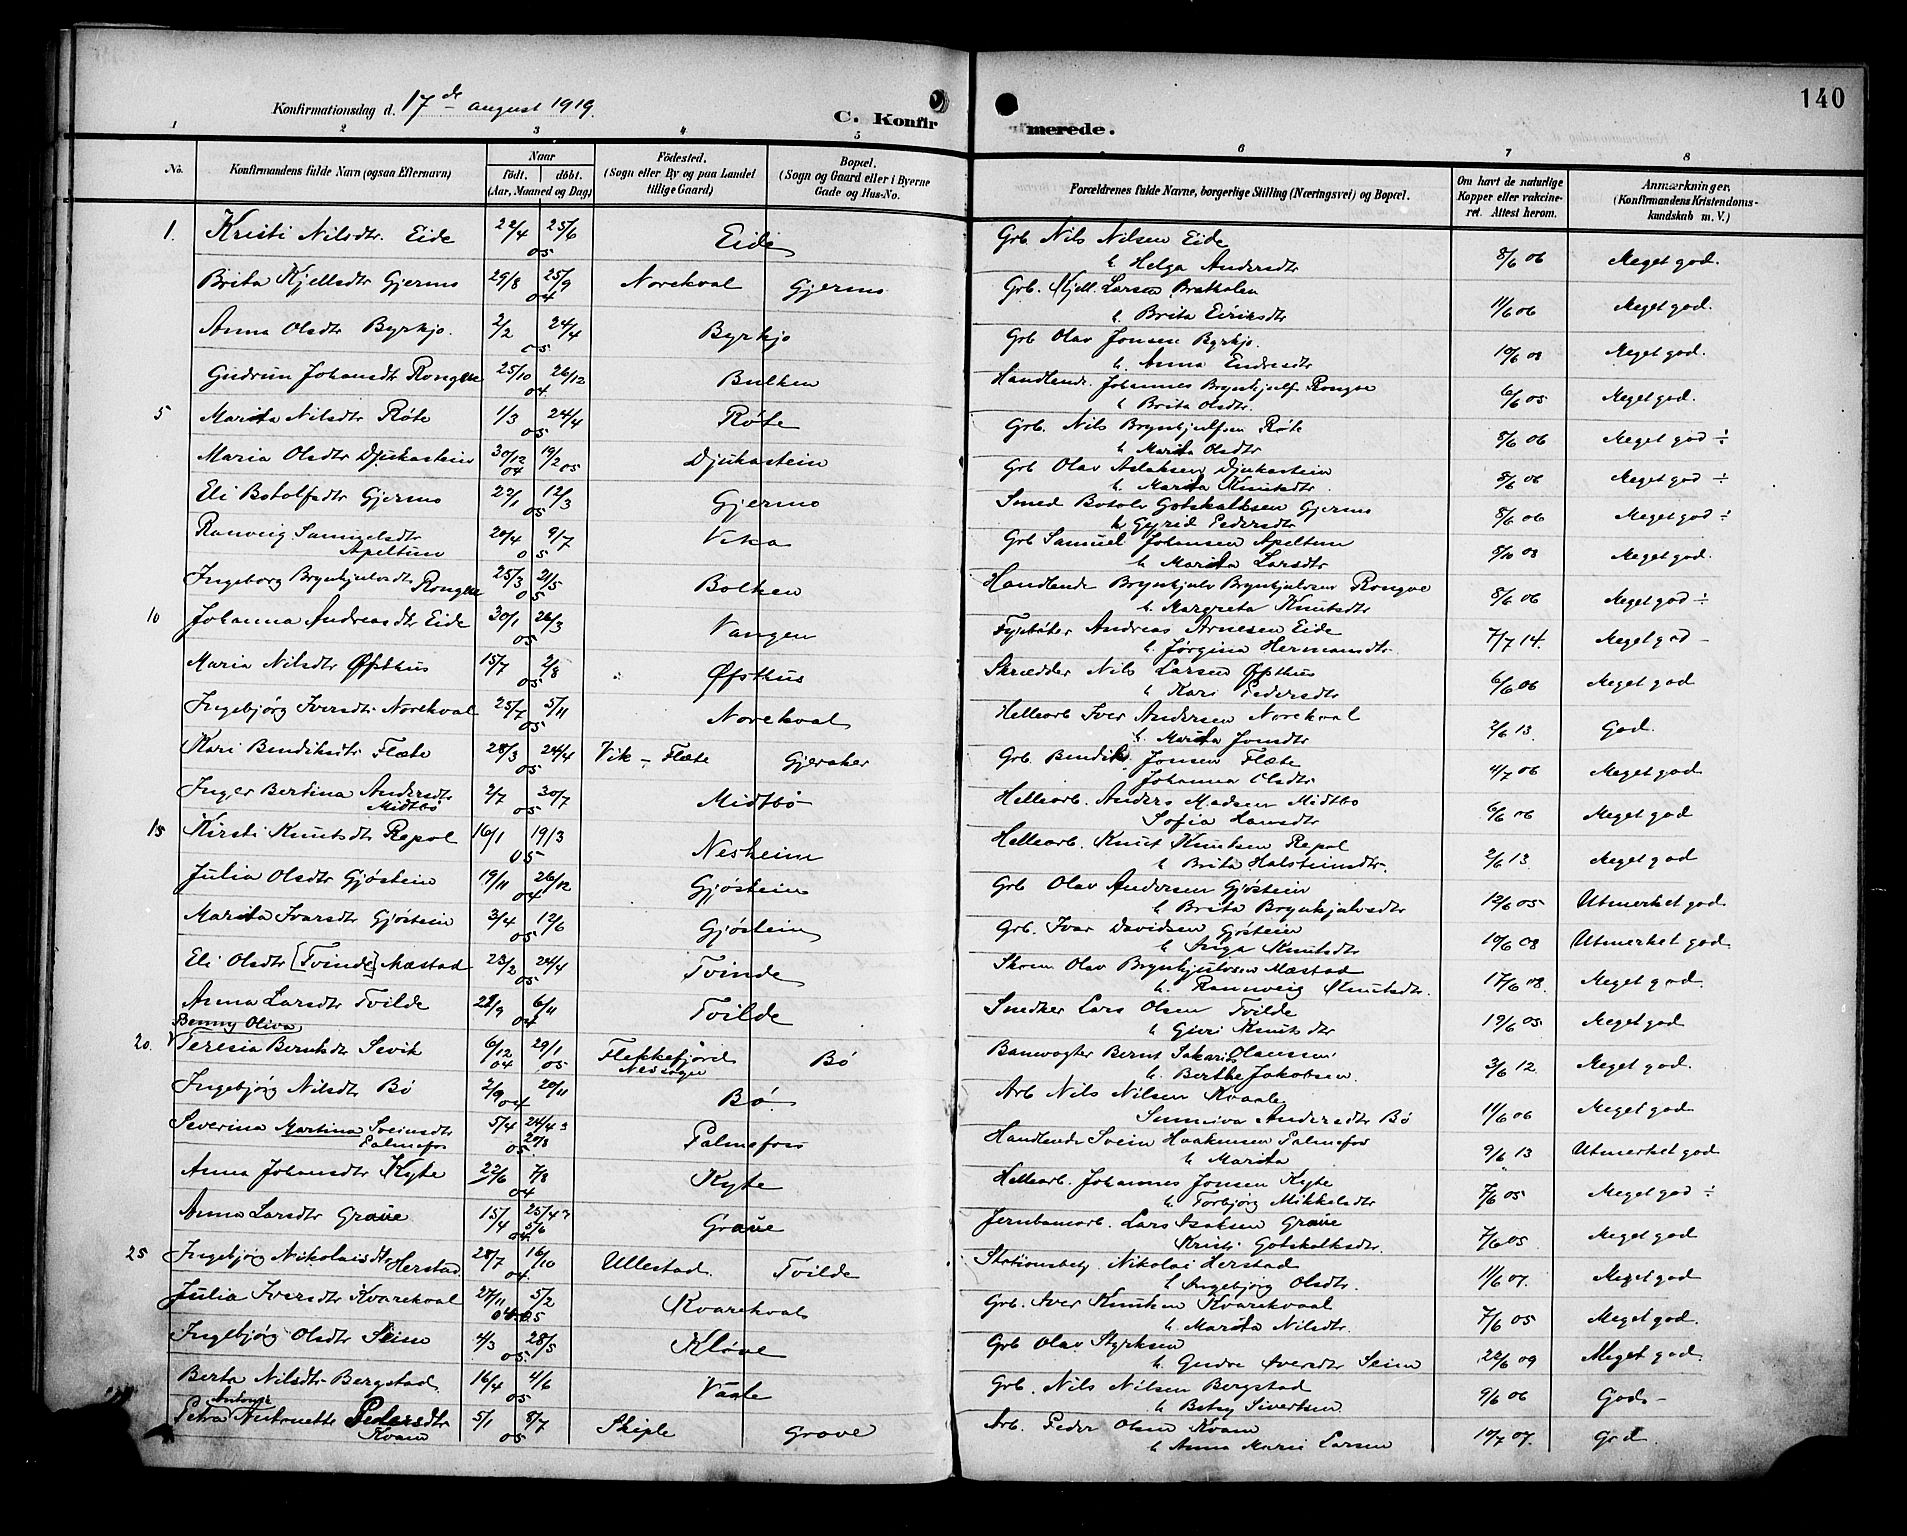 Konfirmationsdag d. 17de august 1919.
C. Konfirmerede.
140
1 2 3 4 5 6 7 8
No. Konfirmandens fulde Navn (ogsaa Efternavn) Naar födt. döbt. (Aar, Maaned og Dag) Födested. (Sogn eller By og paa Landet tillige Gaard) Bopæl. (Sogn og Gaard eller i Byerne Gade og Hus-No. Forældrenes fulde Navne, borgerlige Stilling (Næringsvei) og Bopæl. Om havt de naturlige Kopper eller vakcineret. Attest herom. Anmærkninger. (Konfirmandens Kristendomskundskab m. V.)
1. Kristi Nilsdtr. Eide 22/4 25/6 05 Eide Grb Nils Nilsen Eide h. Helga Andersdtr 8/6 06 Meget god.
Brita Kjellsdtr Gjermo 29/8 25/9 04 Norekval Gjermo Grb. Kjell Larsen h. Brita Eiriksdtr 11/6 06 Meget god.
Anna Olsdtr Byrkjo. 2/2 24/4 05 Byrkjo Grb Olav Jonsen Byrkjo. h. Anna Endresdtr 10/6 08 Meget god.
Gudrun Johansdtr Rongve 25/10 26/12 04 Bulken Handlende. Johannes Brynkjulfs Rongve h Brita Olsdtr. 6/6 05 Meget god.
5 Marita Nilsdtr Røte 1/3 24/4 05 Røte Grb. Nils Brynkjulfsen Røte h Marita Olsdtr 8/6 06 Meget god ÷
Maria Olsdtr Djukastein 30/12 04 19/2 05 Djukastein Grb Olav Aslaksen Djukastein h. Marita Knutsdtr. 8/6 06 Meget god ÷
Eli Botolfsdtr Gjermo 22/1 12/3 05 Gjermo Smed Botolv Gotskalksen Gjermo h Gyrid Pedersdtr 8/6 06 Meget god ÷
Ranveig Samuelsdtr Apeltun 20/4 9/7 05 Vika Grb Samuel Johansen Apeltun h. Marita Larsdtr 8/10 08 Meget god.
Ingeborg Brynkjulvsdtr Rongve 25/3 21/5 05 Bolken Handlende Brynkjulv Brynkjulvsen Rongve h. Margreta Knutsdtr 8/6 06 Meget god ÷
10 Johanna Andreasdtr Eide 30/1 26/3 05 Vangen Fyrbøter Andreas Arnesen Eide h. Jørgina Hermansdtr. 7/7 14. Meget god -
Maria Nilsdtr Øfsthus 15/7 2/8 05 Øfsthus Skrædder Nils Larsen Øfsthus h Kari Pedersdtr 6/6 06 Meget god
Ingebjørg Iversdtr Norekval 25/7 5/11 05 Norekval Hellearb Iver Andersen Norekval h. Marita Jonsdtr 2/6 13. God.
Kari Bendiksdtr Flæte 28/3 24/4 05 Vik - Flæte Gjeraker Grb. Bendik Jonsen Flæte Johanna Olsdtr 4/7 06 Meget god
Inger Bertina Andersdtr Midtbø 2/7 30/7 05 Midtbø Hellearb. Anders Madsen Midtbø Sofia Hansdtr 6/6 06 Meget god
15 Kirsti Knutsdtr Repol 16/1 19/3 05 Nesheim Hellearb. Knut Knutsen Repol h Brita Halsteinsdtr. 2/6 13. Meget god
Julia Olsdtr Gjøstein 19/11 26/12 04 Gjøstein Grb Olav Andersen Gjøstein h Brita Brynkjulvsdtr 12/6 05 Utmerket god
Marita Ivarsdtr Gjøstein 3/4 12/6 05 Gjøstein Grb. Ivar Davidsen Gjøstein h Inga Knutsdtr 10/6 08 Utmerket god.
Eli Olsdtr [Tvinde] Mæstad 23/2 24/4 05 Tvinde Skom Olav Brynkjulvsen Mæstad h. Rannveig Knutsdtr. 17/6 08. Meget god.
Anna Larsdtr Tvilde 22/9 6/11 04 Tvilde Snedker Lars Olsen Tvilde h Guri Knutsdtr 19/6 05 Meget god
Benny Oliva
20. Teresia Berntsdtr Sevik 6/12 04 29/1 05 Flekkefjord Nessogn Bø Banevogter Bernt Sakarias Olaussen h. Berthe Jakobsen. 3/6 12. Meget god.
Ingebjørg Nilsdtr Bø 2/9 20/11 04 Bø. Arb Nils Nilsen Kvaale Sunniva Andersdtr Bø 11/6 06 Meget god
Severina Martina Sveinsdtr Palmefos 5/4 24/4? 27/8 05. Palmefoss Handlende Svein Haakensen Palmefos h Marita 9/6 13 Utmerket god
Anna Johansdtr Kyte 22/6 7/8 04 Kyte Hellearb. Johannes Jonsen Kyte h Torbjørg Mikkelsdtr 7/6 05 Meget god ÷
Anna Larsdtr Graue 15/4 25/4? 5/6 04. Graue Jernbanearb. Lars Isaksen Graue Kristi Gotskalksdtr. 7/6 05. Meget god
25 Ingebjørg Nikolaisdtr Herstad 28/7 16/10 04. Ullestad. Tvilde Stationsbetj. Nikolai Herstad h Ingebjørg Olsdtr. 11/6 07. Meget god
Julia Iversdtr Kvarekval 27/11 04 5/2 05 Kvarekval Grb. Iver Knutsen Kvarekvaal h. Marita Nilsdtr. 7/6 05 Meget god.
Ingebjørg Olsdtr Seim 4/3 28/5 05. Kløve Grb Olav Styrksen h. Gudve Iversdtr Seim 22/6 09 Meget god.
Berta Nilsdtr Bergstad 16/4 4/6 05 Vaale Grb. Nils Nilsen Bergstad h Betsy Sivertsen. 9/6 06 God. -
Petra Antonette Pedersdtr Kvam 5/1 8/7 05 Skiple Grove Arb. Peder Olsen Kvam h Anna Marie Larsen 10/7 07. God.